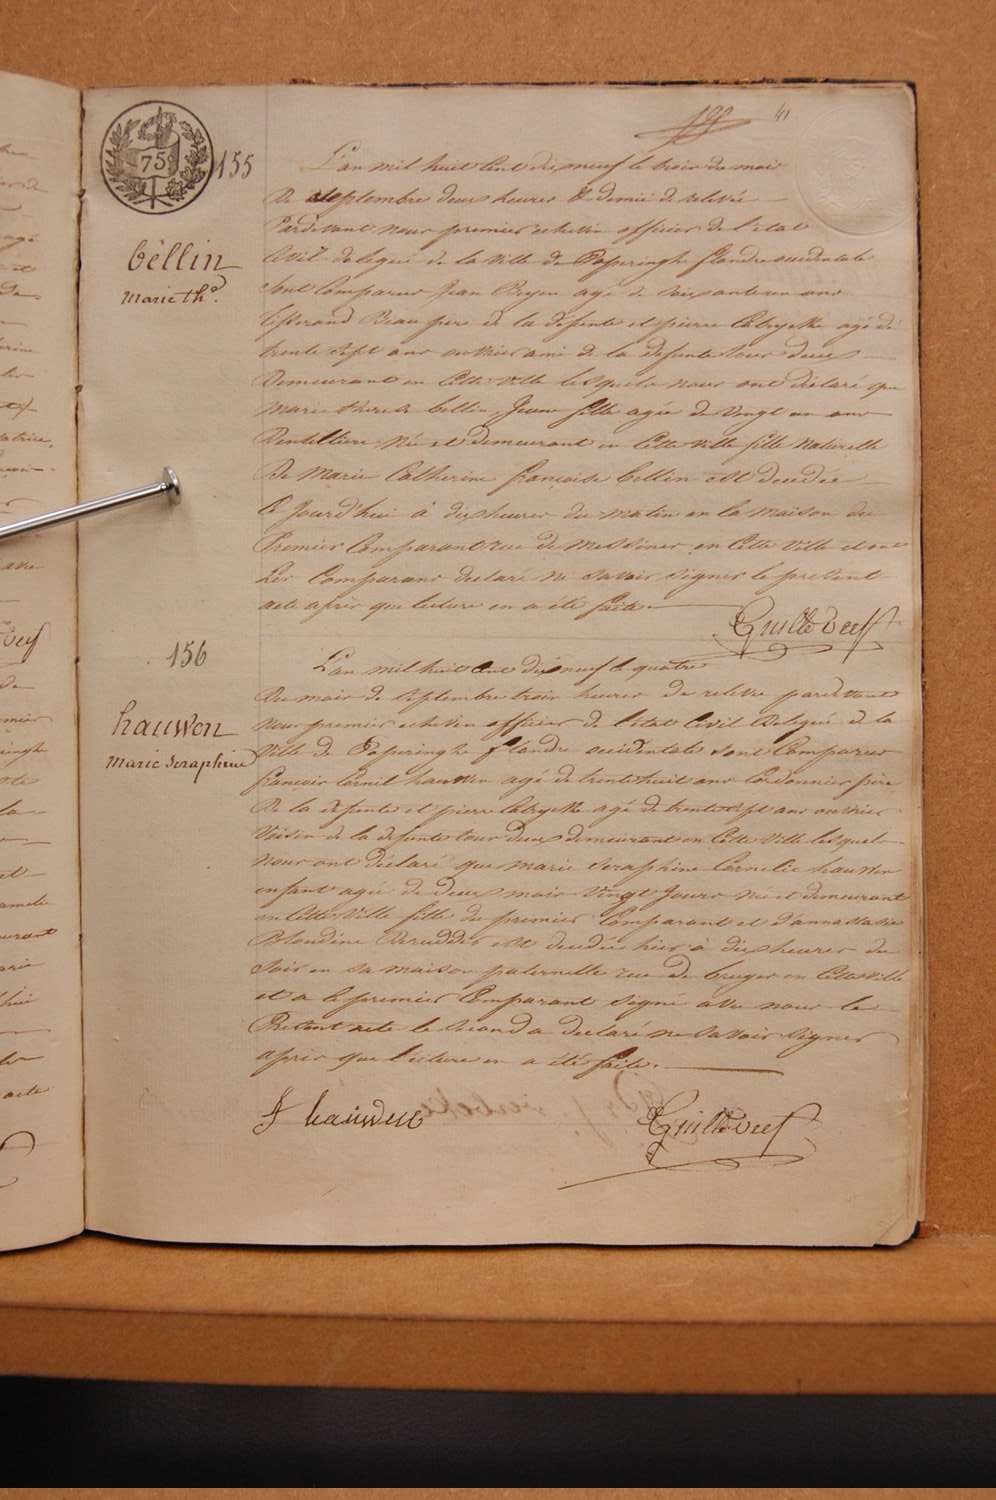 41
75
155
bèllin
Marie th.e
L'an mil huit Cent dix neuf le trois du mois
de Septembre deux heures & demie de relevé
Pardevant nous premier echevin officier de l'etat
Civil delegué de la ville de Poperinghe flandre occidentale
sont Comparus Jean agé de soixante un ans
beau pere de la defunte et pierre agé de
trente sept ans ouvrier ami de la defunte tous deux
demeurant en Cette ville lesquels nous ont déclaré que
Marie therese bellin, Jeune fille agée de vingt un ans
dentelliere née et demeurant en Cette ville fille naturelle
de Marie Catherine françoise bellin est decedée
Ce Jourd'hui à dix heures du matin en la maison du
Premier Comparant rue de Messines en Cette ville et ont
Les Comparans declaré ne savoir signer le present
acte après que lecture en a été faite.
156
hauwen
Marie Seraphine
L'an mil huit Cent dix neuf le quatre
du mois de septembre trois heures de relevé pardevant
nous premier echevin officier de l'etat Civil delegué de la
Ville de Poperinghe flandre occidentale sont Comparus
françois Cornil hauwen agé de trente huit ans Cordonnier père
de la defunte et pierre agé de trente sept ans ouvrier
voisin de la defunte tous deux demeurant en Cette ville lesquels
nous ont déclaré que Marie Seraphine Cornelie hauwen
enfant agée de deux mois vingt Jours née et demeurant
en Cette ville fille du premier Comparant et d'anna
Blondine est decedée hier à dix heures du
soir en sa maison paternelle rue de bruges en Cette ville
et a le premier Comparant signé avec nous le
Present acte le second a declaré ne savoir signer
après que lecture en a été faite.
f hauwen